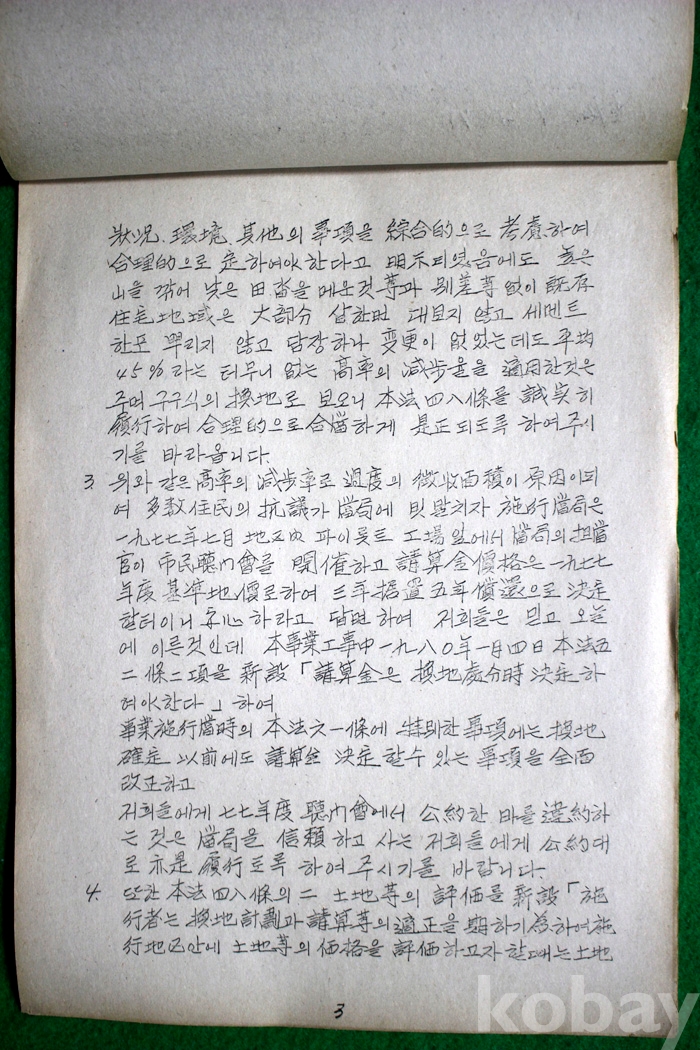 狀況、環境、其他의 事項을 綜合的으로 考慮하여
合理的으로 定하여야 한다고 明示되였음에도 높은
山을 깎어 낮은 田畓을 메운것等과 別差等없이 旣存
住宅地域은 大部分 삽한번 대보지 않고 세멘트
한포 뿌리지 않고 담장하나 変更이 없었는데도 平均
45%라는 터무니 없는 高率의 減步율을 適用한것은
주먹구구식의 換地로 보오니 本法四八條를 誠実히
履行하여 合理的으로 合當하게 是正되도록 하여주시
기를 바라옵니다.
3. 위와 같은 高率의 減步率로 過度의 徵收面積이 原因이되
여 多数住民의 抗議가 當局에 빗발치자 施行當局은
一九七七年七月 地区內 파이롯트 工場 앞에서 當局의 担當
官이 市民聽聞會를 開催하고 請算金價格은 一九七七
年度 基準地價로하여 三年据置五年償還으로 決定
할터이니 安心하라고 답변하여 저희들은 믿고 오늘
에 이른것인데 本事業工事中 一九八〇年一月四日 本法五
二條二項을 新設「請算金은 換地處分時 決定하
여야한다」하여
事業施行當時의 本法六一條에 特別한 事項에는 換地
確定 以前에도 請算金 決定할수 있는 事項을 全面
改正하고
저희들에게 七七年度 聽聞會에서 公約한 바를 違約하
는 것은 當局을 信賴하고 사는 저희들에게 公約대
로 亦是 履行토록 하여 주시기를 바랍니다.
4. 또한 本法四八條의 二 土地等의 評価를 新設「施
行者는 換地計劃과 請算等의 適正을 期하기 爲하여 施
行地区안에 土地等의 価格을 評価하고자 할때는 土地
3
kobay